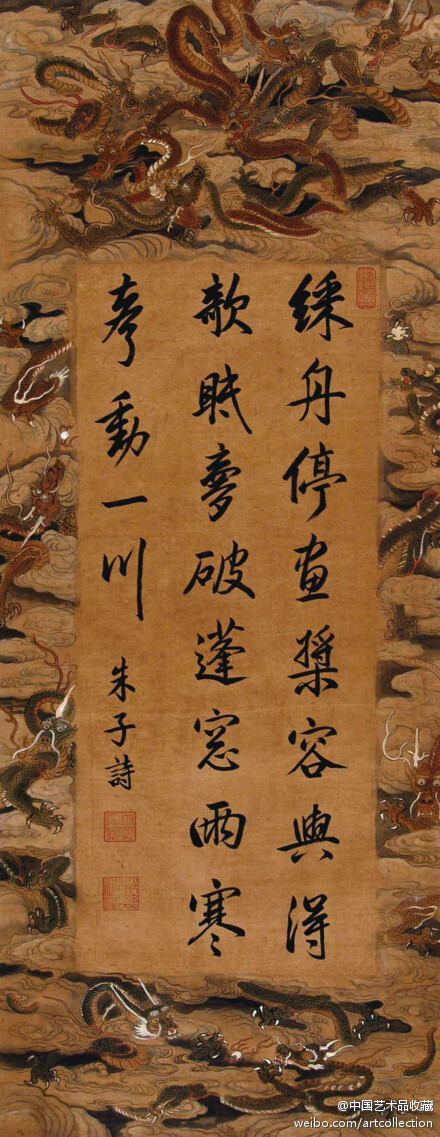 綵舟停畫槳容與得
欹眠夢破蓬窓雨寒
声動一川
朱子詩
@中国艺术品收藏
weibo.com/artcollection